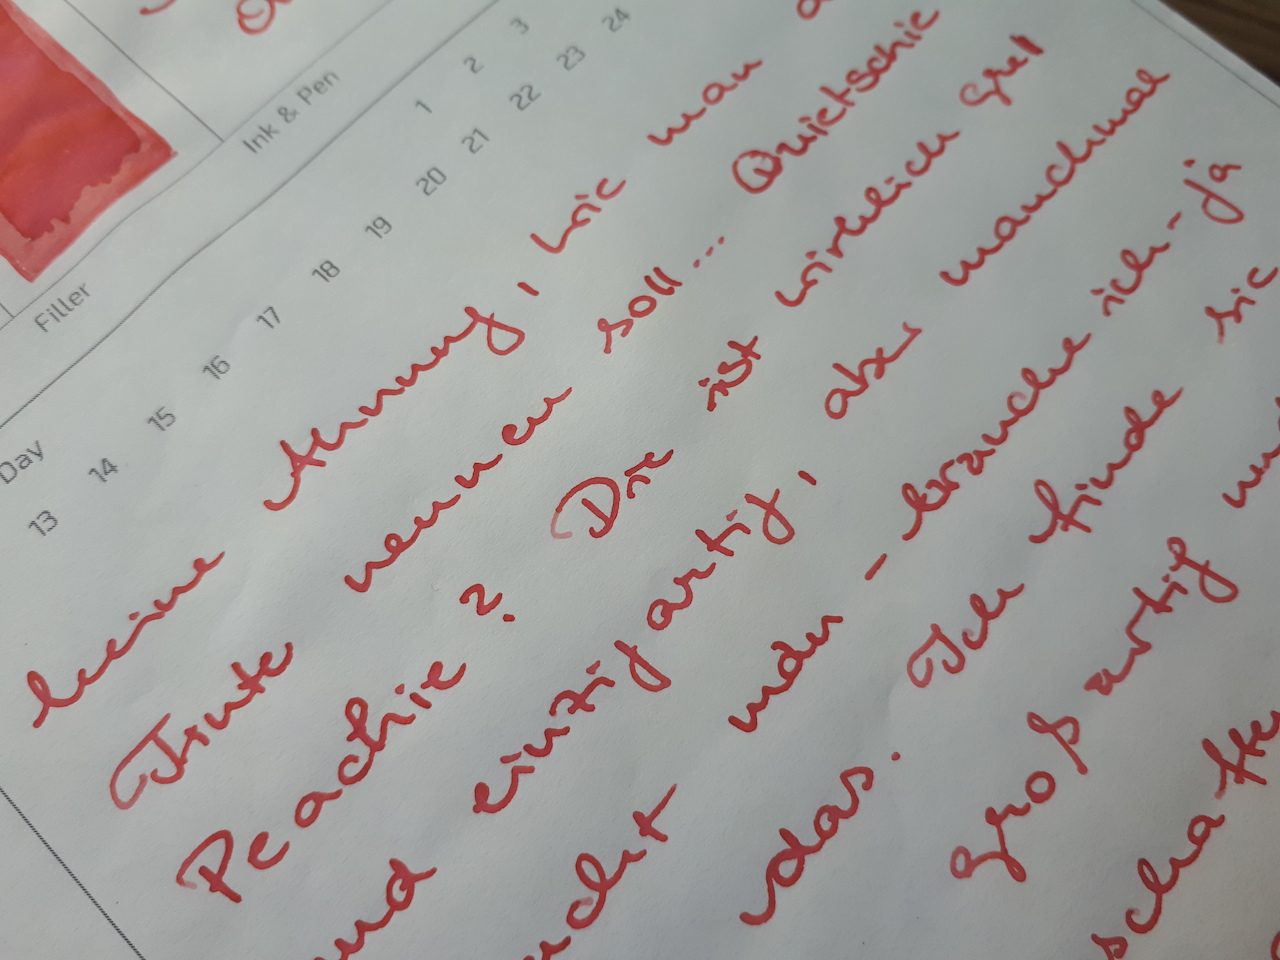 Ink & Pen
Filler 1 2 3
Day 13 14 15 16 17 18 19 20 21 22 23 24
keine Ahnung, wie man
Tinte nennen soll... Quietschie
Peachie? Die ist wirklich grel
und einzigartig, aber manchmal
– brauche ich – ja
das. Ich finde sie
großartig